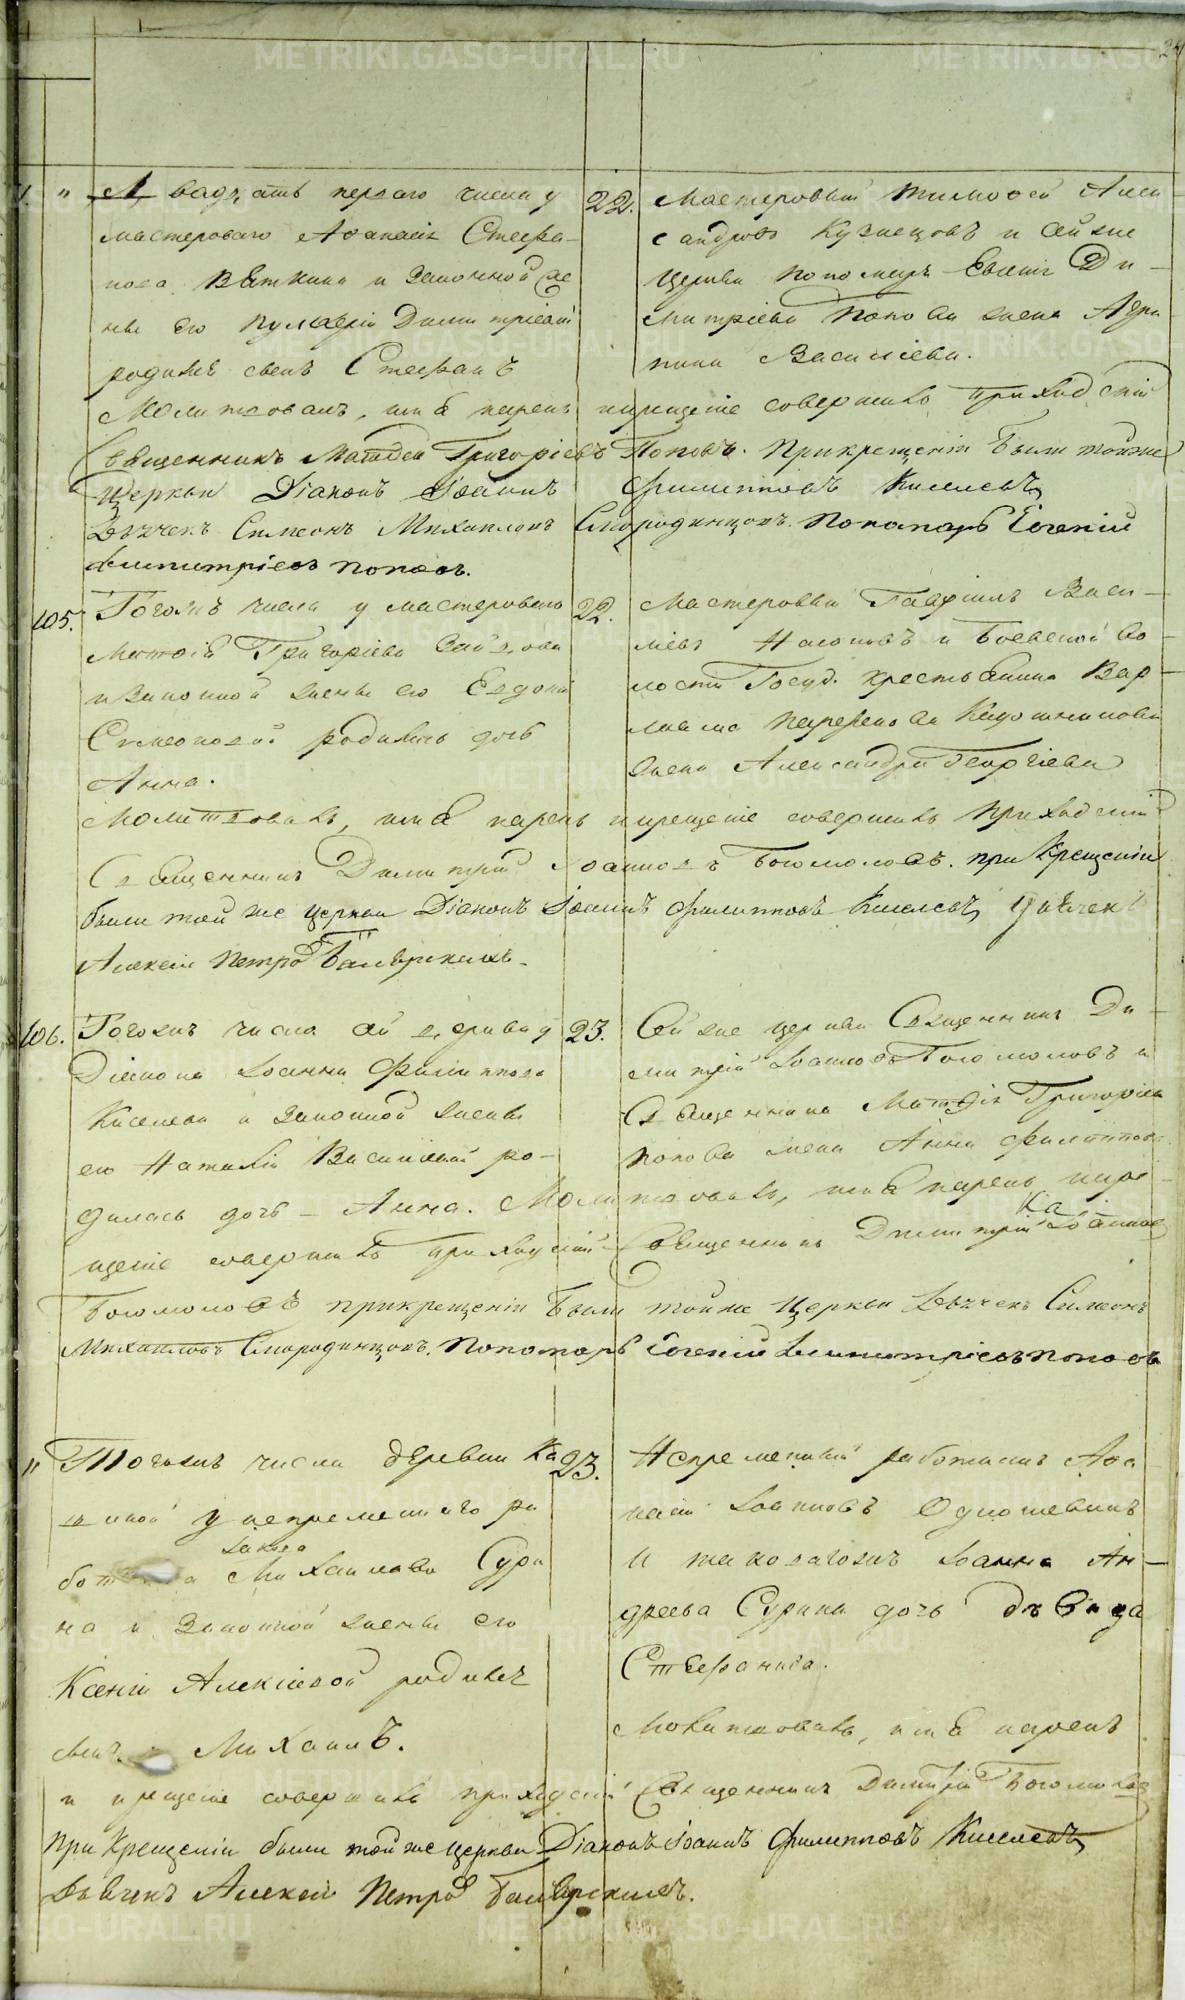 24
1. " Двадцать перваго числа у
мастероваго Аѳанасія Стефа-
нова Вяткина и законной же
ны его Пульхеріи Димитріевой
родился сынъ Стефанъ
22. Мастеровый Тимоѳей Алек
сандровъ Кузнецовъ и сей же
церкви пономаря Евгенія Ди-
митріева Попова жена Агри
пина Василіева.
Молитвовалъ, имя нарекъ и крещеніе совершилъ Приходскій
Священникъ Матѳей Григоріевъ Поповъ. При крещеніи были тойже
Церкви Діаконъ Іоаннъ Филипповъ Киселевъ,
Дьячекъ Симеонъ Михаиловъ Смородинцовъ. Пономарь Евгеній
Димитріевъ Поповъ.
105. Тогожъ числа у мастероваго
Григоріева
и законной жены его Евдокіи
Симеоновой родилась дочь
Анна.
22. Мастеровый Гавріилъ Васи-
льевъ и Боевской во-
лости Госуд. крестьянина Вар-
лаама
жена Александра Георгіева
Молитвовалъ, имя нарекъ и крещеніе совершилъ Приходскій
Священникъ Димитрій Іоанновъ Богомоловъ. при Крещеніи
были той же церкви Діаконъ Іоаннъ Филипповъ Киселевъ, Дьячекъ
Алексій Петровъ
106. Тогожъ числа сей церкви у
Діакона Іоанна Филиппова
Киселева и законной жены
его Наталіи Василіевой ро-
дилась дочь - Анна.
23. Сей же церкви Священникъ Ди-
митрій Іоанновъ Богомоловъ и
Священника Матѳія Григоріева
Попова жена Анна Филиппова.
Молитвовалъ, имя нарекъ, и кре-
щеніе совершилъ Приходскій Священникъ Димитрій Іоанновъ
Богомоловъ при крещеніи были тойже Церкви Дьячекъ Симеонъ
Михаиловъ Смородинцовъ. Пономарь Евгеній Димитріевъ Поповъ
" Тогожъ числа деревни Ка
у непремѣннаго ра
Михаилова Сури
на и законной жены его
Ксеніи Алексіевой родился
сынъ Михаилъ.
23. Непремѣнный работникъ Аѳа
насій Іоанновъ
и таковагожъ Іоанна Ан-
дреева Сурина дочь дѣвица
Стефанида.
Молитвовалъ, имя нарекъ
и крещеніе совершилъ приходскій Священникъ Димитрій Богомоловъ
При Крещеніи были той же церкви Діаконъ Іоаннъ Филипповъ Киселевъ,
Дьячекъ Алексій Петровъ